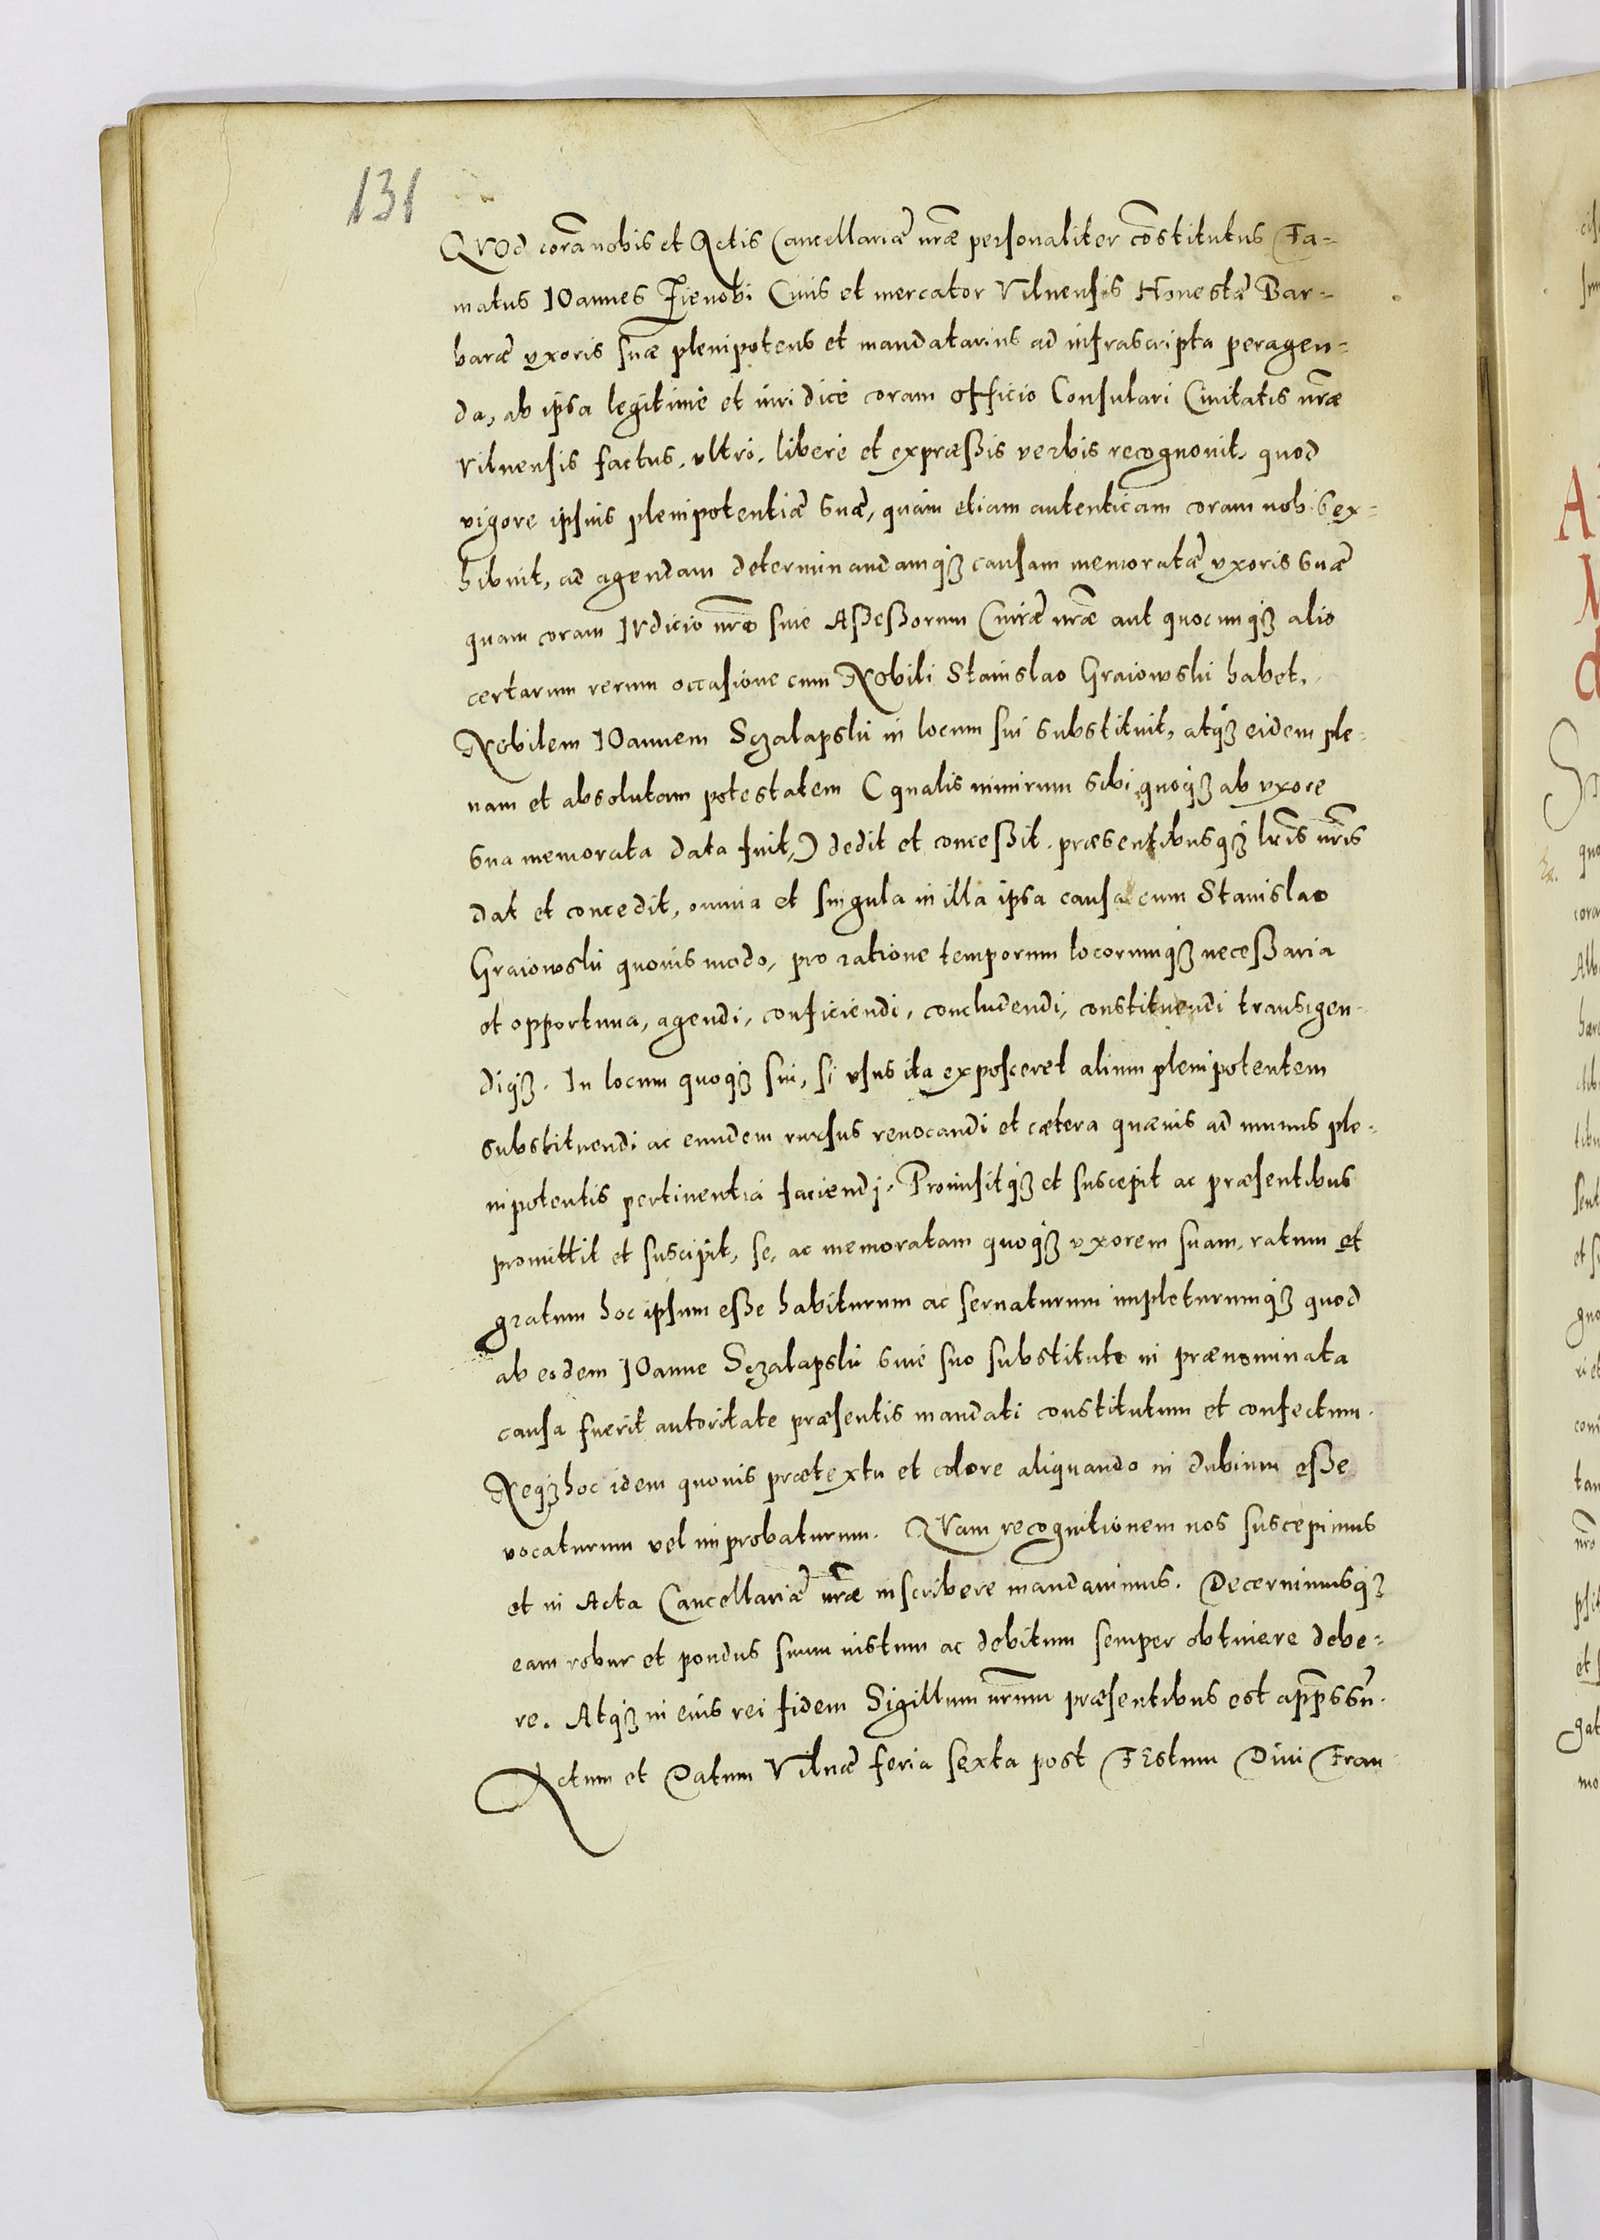 131
QVOd corā nobis et Actis Cancellariæ nr̃æ personaliter cōstitutus Fa-
matus IOannes Civis et mercator Vilnensis Honestæ Bar-
baræ vxoris suæ plenipotens et mandatarius ad infrascripta peragen-
da, ab ipsa legitimè et iuridicè coram officio Consulari Ciuitatis nr̃æ
Vilnensis factus, vltrò, liberè et expræßis verbis recognouit, quod
vigore ipsius plenipotentiæ suæ, quàm etiam autenticam coram nobis ex-
hibuit, ad agendam determinandamqȝ causam memoratæ vxoris suæ
quam coram IVdicio nr̃o siue Aßeßorum Curiæ nr̃æ aut quocunqȝ alio
certarum rerum occasione cum Nobili Stanislao Graiowski habet,
Nobilem IOannem Sczalapski in locum sui substituit, atqȝ eidem ple-
nam et absolutam potestatem (qualis nimirum sibi quoqȝ ab vxore
sua memorata data fuit,) dedit et conceßit, præsentibusqȝ lr̃is nr̃is
dat et concedit, omnia et singula in illa ipsa causa cum Stanislao
Graiowski quouis modo, pro ratione temporum locorumqȝ neceßaria
et opportuna, agendi, conficiendi, concludendi, constituendi transigen-
diqȝ. In locum quoqȝ sui, si vsus ita exposceret alium plenipotentem
substituendi ac eundem rursus reuocandi et cætera quæuis ad munus ple-
nipotentis pertinentia faciendi. Promisitqȝ et suscepit ac præsentibus
promittit et suscipit, se, ac memoratam quoqȝ vxorem suam, ratum et
gratum hoc ipsum eße habiturum ac seruaturum impleturumqȝ quod
ab eodem IOanne Sczalapski siuè suo substituto in prænominata
causa fuerit autoritate præsentis mandati constitutum et confectum.
Neqȝ hoc idem quouis prætextu et colore aliquando in dubium eße
vocaturum vel improbaturum. QVam recognitionem nos suscepimus
et in Acta Cancellariæ nr̃æ inscribere mandauimus. Decernimusqȝ
eam robur et pondus suum iustum ac debitum semper obtinere debe-
re. Atqȝ in eius rei fidem Sigillum nr̃um præsentibus est app̃ssũ.
Actum et Datum Vilnæ feria sexta post FEstum Diui Fran-